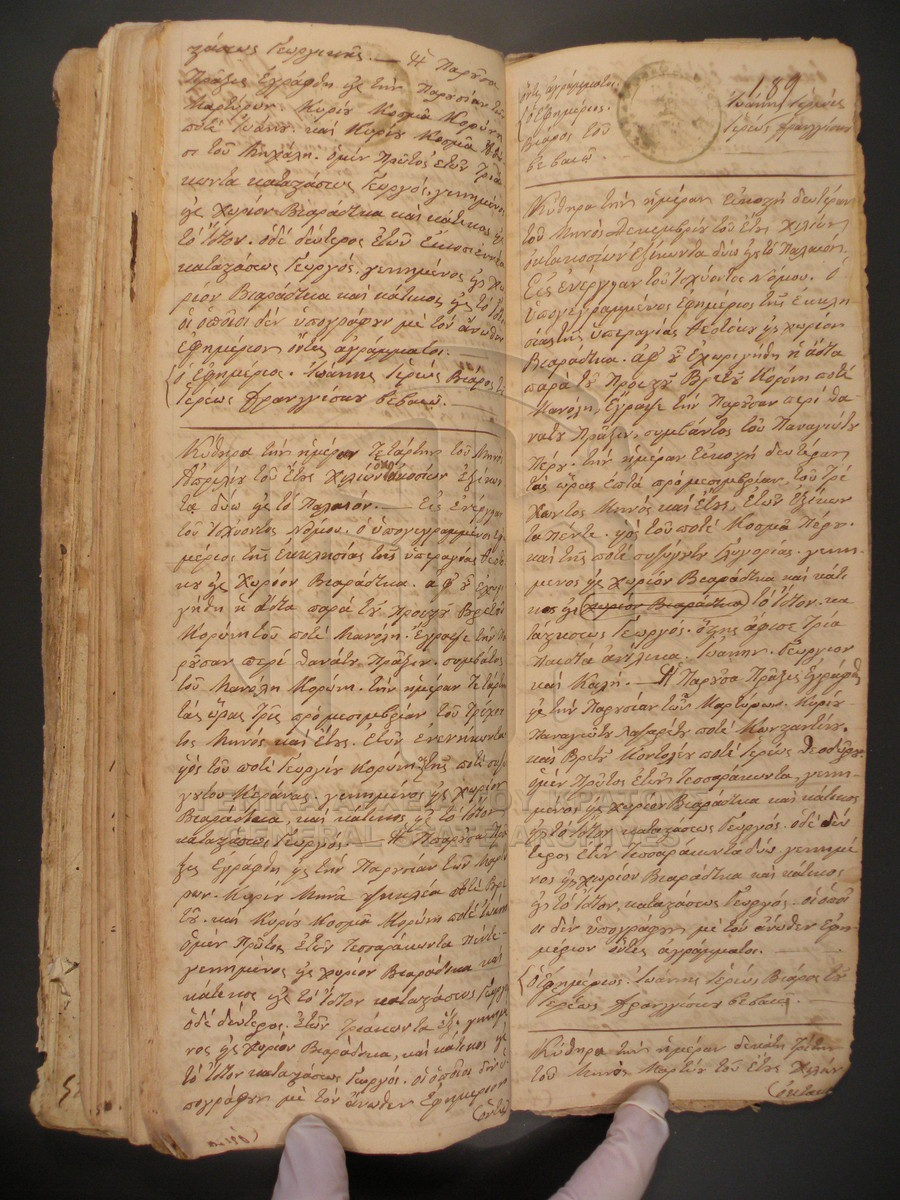 τάσεως Γεωργικῆς. — Ἡ Παροῦσα
Πρᾶξις ἐγράφθη εἰς τὴν Παρουσίαν τῶν
Μαρτύρων. Κυρίου Κοσμᾶ Κορώνη
ποτέ Ἰωάννου. καὶ Κυρίου Κοσμᾶ
τοῦ Μιχάλη. ὁμὲν Πρῶτος ἐτῶν Τριά
κοντα καταστάσεως Γεωργός. γεννημένος
εἰς χωρίον Βιαράδικα καὶ κάτικος εἰς
τὸ ἴδιον. ὁδὲ δεύτερος ἐτῶν εἴκοσι ἐννέα
καταστάσεως Γεωργός. γεννημένος εἰς χω
ρίον Βιαράδικα καὶ κάτικος εἰς τὸ ἴδιον
οἱ ὁποῖοι δὲν ὑπογράφουν μὲ τὸν ἄνωθεν
Ἐφημέριον ὄντες ἀγράμματοι.
ὁ Ἐφημέριος. Ἰωάννης Ἱερεὺς Βιάρος τοῦ
Ἱερέως Φραγγίσκου βεβαιῶ.
Κύθηρα τὴν ἡμέραν Τετάρτην τοῦ Μηνὸς
Ἀπριλίου τοῦ ἔτους χιλίων ὀκτακοσίων ἑξήκον
τα δύω εἰς τὸ Παλαιόν. — Εἰς ἐνέργειαν
τοῦ ἰσχύοντος Νόμου. ὁ ὑπογεγραμμένος ἐφη
μέριος τῆς ἐκκλησίας τῆς ὑπεραγίας Θεοτό
κου εἰς χωρίον Βιαράδικα. ἀφ' οὗ ἐχορη
γήθη ἡ ἄδεια παρὰ τοῦ Προεστοῦ Βρετοῦ
Κορώνη τοῦ ποτέ Μανόλη. ἔγραψε τὴν Πα
ροῦσαν περὶ θανάτου Πρᾶξιν. συμβάντος
τοῦ Μανόλη Κορώνη. τὴν ἡμέραν Τετάρτην
τὰς ὥρας τρῖς πρὸ μεσιμβρίαν τοῦ Τρέχον
τος Μηνὸς καὶ ἔτους. ἐτῶν ἐνενήκοντα
υἱὸς τοῦ ποτέ Γεωργίου Κορώνη καὶ τῆς ποτέ συζύ
γου του Κυράνας. γεννημένος εἰς χωρίον
Βιαράδικα, καὶ κάτικος εἰς τὸ ἴδιον
καταστάσεως Γεωργός. — Ἡ Παροῦσα Πρᾶ
ξις ἐγράφθη εἰς τὴν Παρουσίαν τῶν Μαρτύ
ρων. Κυρίου Μηνᾶ ποτέ Βρε
τοῦ. καὶ Κυρίου Κοσμᾶ Κορώνη ποτέ Ἰωάννου
ὁμὲν Πρῶτος ἐτῶν Τεσσαράκοντα πέντε
γεννημένος εἰς χωρίον Βιαράδικα καὶ
κάτικος εἰς τὸ ἴδιον καταστάσεως Γεωργός
ὁδὲ δεύτερος. ἐτῶν Τριάκοντα ἕξ. γεννημέ
νος εἰς χωρίον Βιαράδικα, καὶ κάτικος εἰς
τὸ ἴδιον καταστάσεως Γεωργός. οἱ ὁποῖοι δὲν ὑ
πογράφουν μὲ τὸν ἄνωθεν Ἐφημέριον
(ὄντες
189
ὄντες ἀγράμματοι.
ὁ Ἐφημέριος.
Βιάρος τοῦ
βεβαιῶ.
Ἰωάννης Ἱερεὺς
Ἱερέως Φραγγίσκου
Κύθηρα τὴν ἡμέραν εἰκοστὴ δευτέραν
τοῦ Μηνὸς Δεκεμβρίου τοῦ ἔτους χιλίων
ὀκτακοσίων ἑξήκοντα δύω εἰς τὸ Παλαιόν.
Εἰς ἐνέργειαν τοῦ ἰσχύοντος Νόμου. ὁ
ὑπογεγραμμένος Ἐφημέριος τῆς ἐκκλη
σίας τῆς ὑπεραγίας Θεοτόκου εἰς χωρίον
Βιαράδικα. ἀφ' οὗ ἐχοριγήθη ἡ ἄδεια
παρὰ τοῦ Προεστοῦ Βρετοῦ Κορώνη ποτέ
Μανόλη, ἔγραψε τὴν Παροῦσαν περὶ θα
νάτου Πρᾶξιν, συμβάντος τοῦ Παναγιώτου
τὴν ἡμέραν εἰκοστὴ δευτέραν
τὰς ὥρας ἑπτὰ πρὸ μεσιμβρίαν. τοῦ Τρέ
χοντος Μηνὸς καὶ ἔτους, ἐτῶν ἑξήκον
τα πέντε. υἱὸς τοῦ ποτέ Κοσμᾶ
καὶ τῆς ποτέ συζύγου του Γρηγορίας. γεννη
μένος εἰς χωρίον Βιαράδικα καὶ κάτι
κος εἰς χωρίον Βιαράδικα τὸ ἴδιον. κα
τάστασεως Γεωργός. ὅστις ἄφισε τρία
Παιδιὰ ἀνίλικα. Ἰωάννην. Γεώργιον
καὶ Καλή. — Ἡ Παροῦσα Πρᾶξις ἐγράφθη
εἰς τὴν Παρουσίαν τῶν Μαρτύρων. Κυρίου
Παναγιώτου Λαζαρέτου ποτέ Κωνσταντίνου.
καὶ Βρετοῦ Κοντολέου ποτέ Ἱερέως Θεοδώρου
ὁμὲν Πρῶτος ἐτῶν Τεσσαράκοντα, γεννη
μένος εἰς χωρίον Βιαράδικα καὶ κάτικος
εἰς τὸ ἴδιον καταστάσεως Γεωργός. ὁδὲ δεύ
τερος ἐτῶν Τεσσαράκοντα δύω γεννημέ
νος εἰς χωρίον Βιαράδικα καὶ κάτικος
εἰς τὸ ἴδιον, καταστάσεως Γεωργός. οἱ ὁποῖ
οι δὲν ὑπογράφουν μὲ τὸν ἄνωθεν Ἐφη
μέριον ὄντες ἀγράμματοι.
ὁ Ἐφημέριος. Ἰωάννης Ἱερεὺς Βιάρος τοῦ
Ἱερέως Φραγγίσκου βεβαιῶ.
Κύθηρα τὴν ἡμέραν δεκάτη Τρίτην
τοῦ Μηνὸς Μαρτίου τοῦ ἔτους χιλίων
(ὀκτακο
GENERAL STATE ARCHIVES